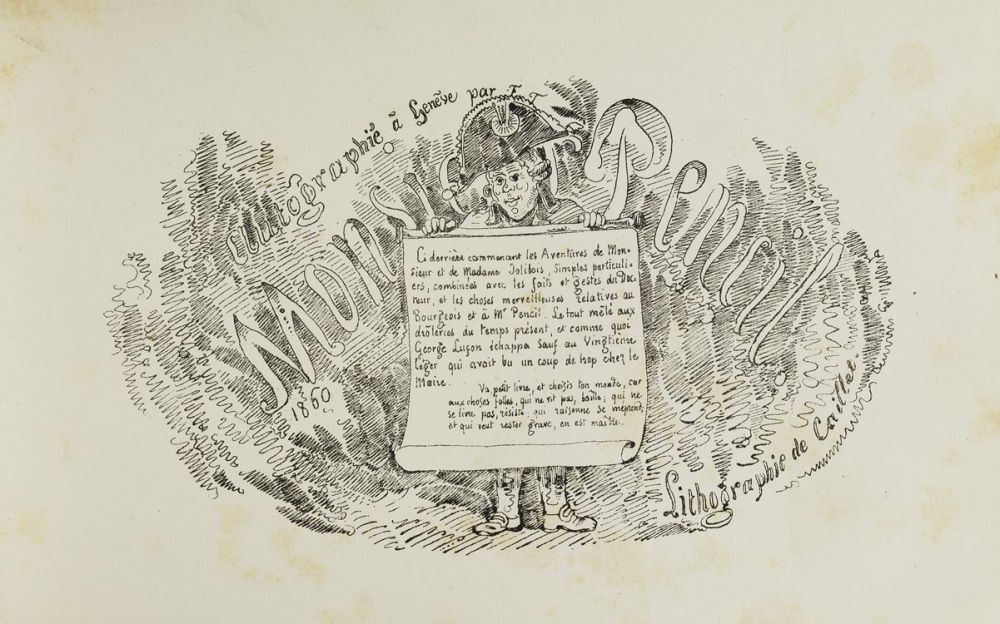 autographié à Genève par F. T.
MONSIEUR PENCIL
1860
Ci derrière commencent les Aventures de Mon-
sieur et de Madame Jolibois, simples particuli-
ers, combinées avec les faits et gestes du Doc-
teur, et les choses merveilleuses relatives au
Bourgeois et à Mr Pencil. Le tout mêlé aux
drôleries du temps présent, et comme quoi
George Luçon échappa sauf au Vingtième
léger qui avait bu un coup de trop chez le
Maire.
Va petit livre, et choisis ton monde, car
aux choses folles, qui ne rit pas, baille; qui ne
se livre pas, résiste; qui raisonne se méprend,
et qui veut rester grave, en est maître.
Lithographie de Caillet.